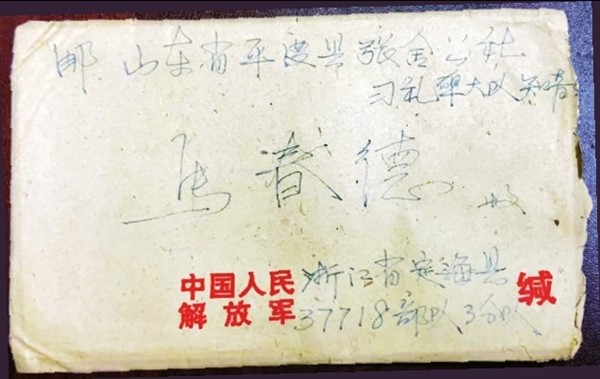 邮 山东省平度县张舍公社
刁大队知青
马春德 收
中国人民 浙江省定海县 缄
解放军 37718部队3分队